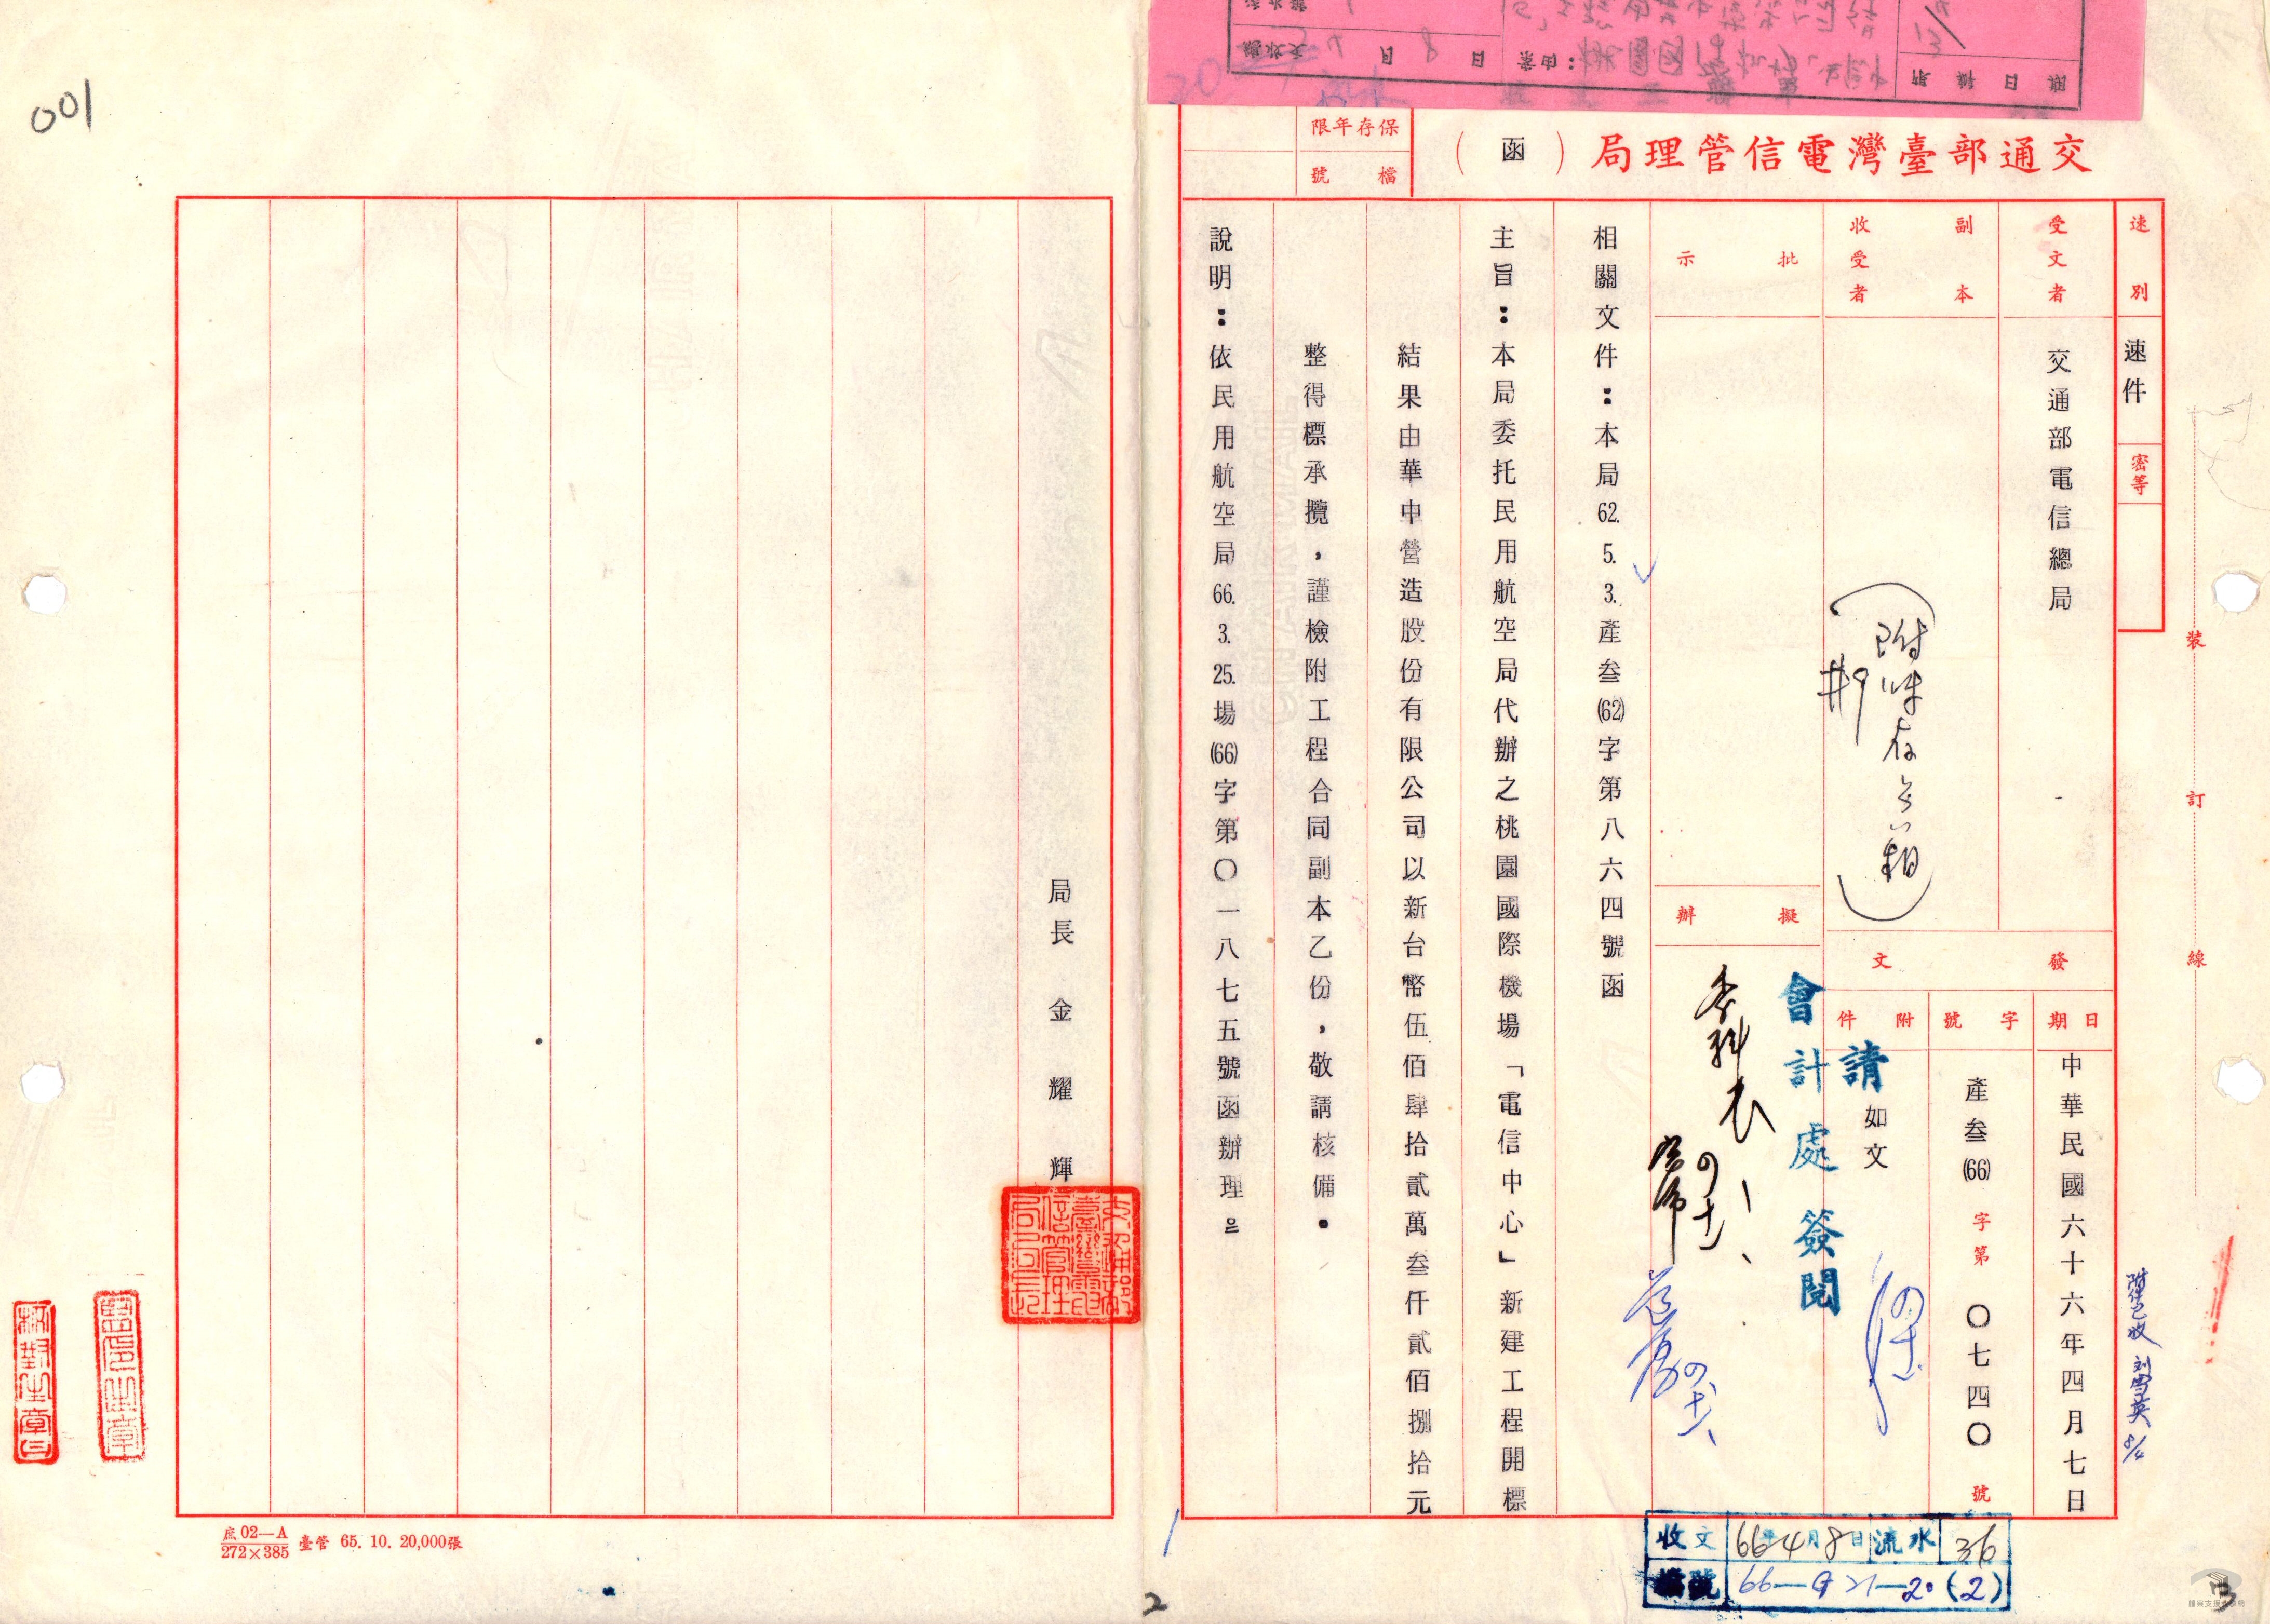 交通部臺灣電信管理局（函）
保存年限
檔號
速別
速件
密等
受文者
交通部電信總局
副本收受者
批示
擬辦
發文
日期
中華民國六十六年四月七日
字號
產叁(66)字第〇七四〇號
附件
如文
請
會計處簽閱
相關文件：本局62.5.3.產叁(62)字第八六四號函
主旨：本局委托民用航空局代辦之桃園國際機場「電信中心」新建工程開標
結果由華中營造股份有限公司以新台幣伍佰肆拾貳萬叁仟貳佰捌拾元
整得標承攬，謹檢附工程合同副本乙份，敬請核備。
說明：依民用航空局66.3.25.場(66)字第〇一八七五號函辦理。
局長 金耀輝
裝
訂
線
附件已收 8/4
收文 66年4月8日 流水 36
檔號 66-G21-20(2)
001
庶02—A
272×385
臺管 65. 10. 20,000張
2
3